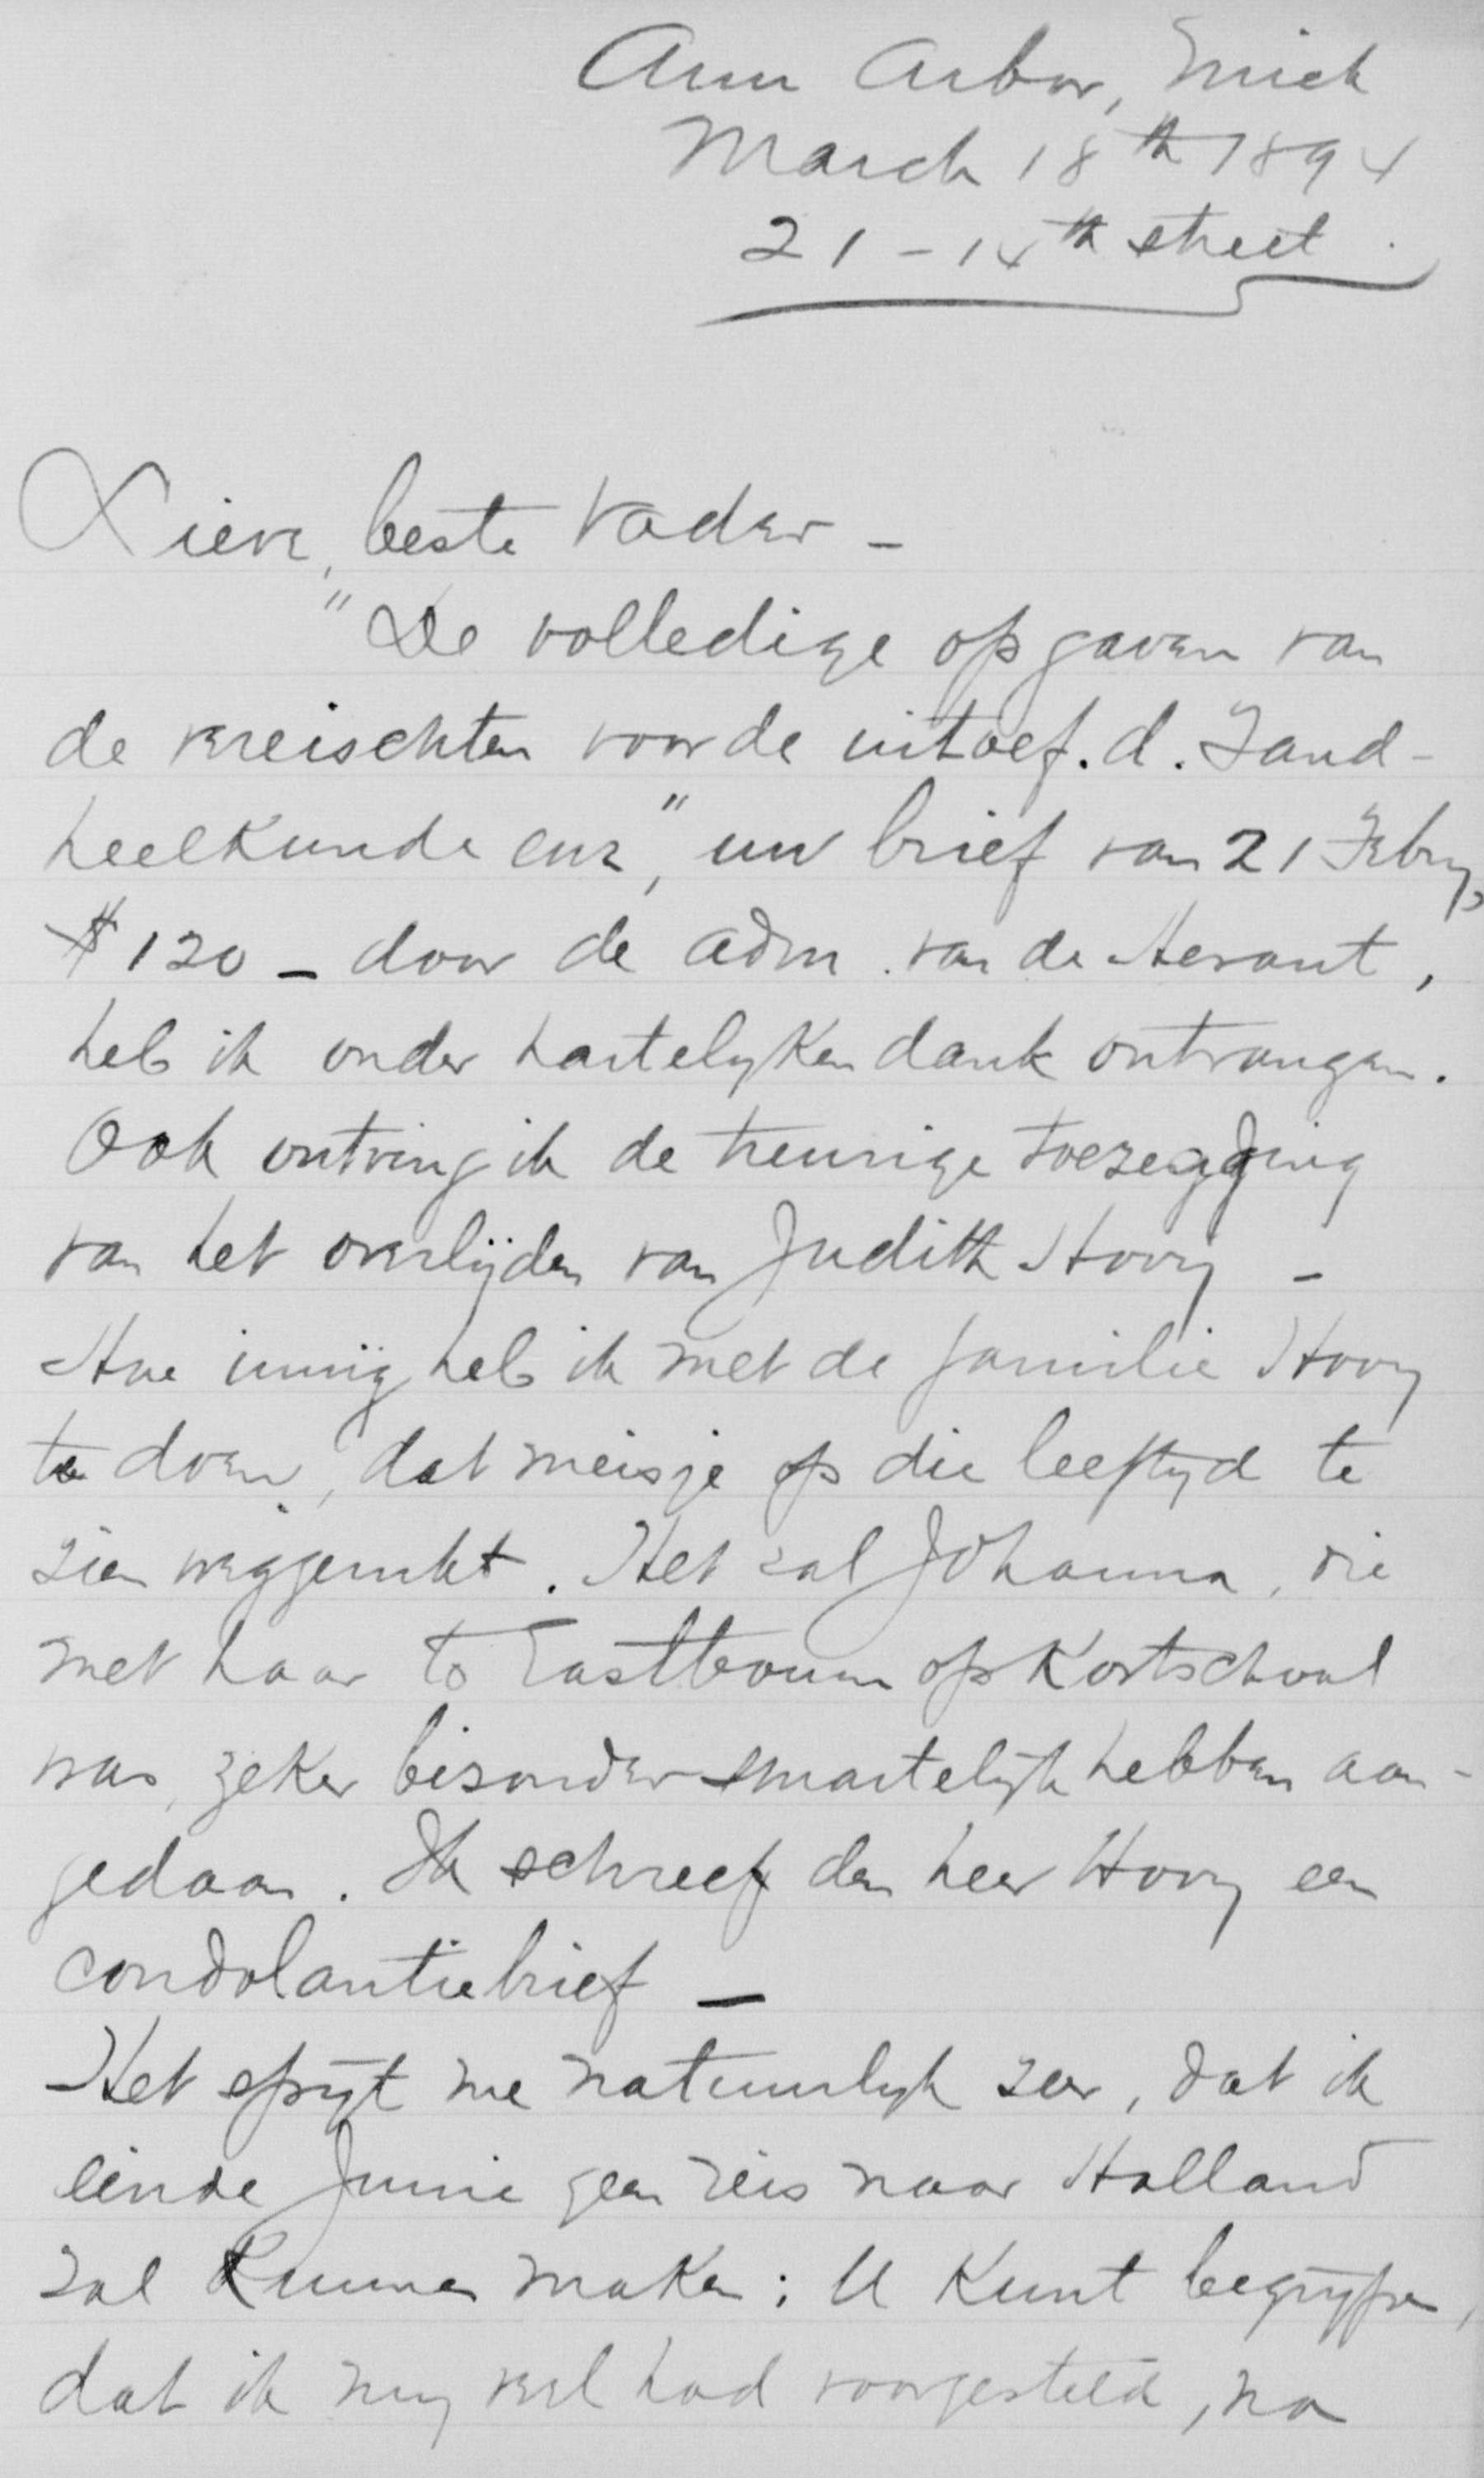 Ann Arbor, Mich
March 18th 1894
21 - 14th street.
Lieve, beste Vader -
"De volledige opgaven van
de vereischten voor de uitoef. d. Tand-
heelkunde enz", uw brief van 21 Febry,
$120 - door de adm. van de Heraut,
heb ik onder hartelyken dank ontvangen.
Ook ontving ik de treurige toezegging
van het overlijden van Judith Hovy -
Hoe innig heb ik met de familie Hovy
te doen, dat meisje op die leeftyd te
zien weggerukt. Het zal Johanna, die
met haar to Eastbourn op Kostschool
was, zeker bizonder smartelijk hebben aan-
gedaan. Ik schreef den heer Hovy een
condolantiebrief -
Het spyt me natuurlyk zeer, dat ik
einde Junie geen reis naar Holland
zal kunnen maken; U kunt begrypen,
dat ik my veel had voorgesteld, na